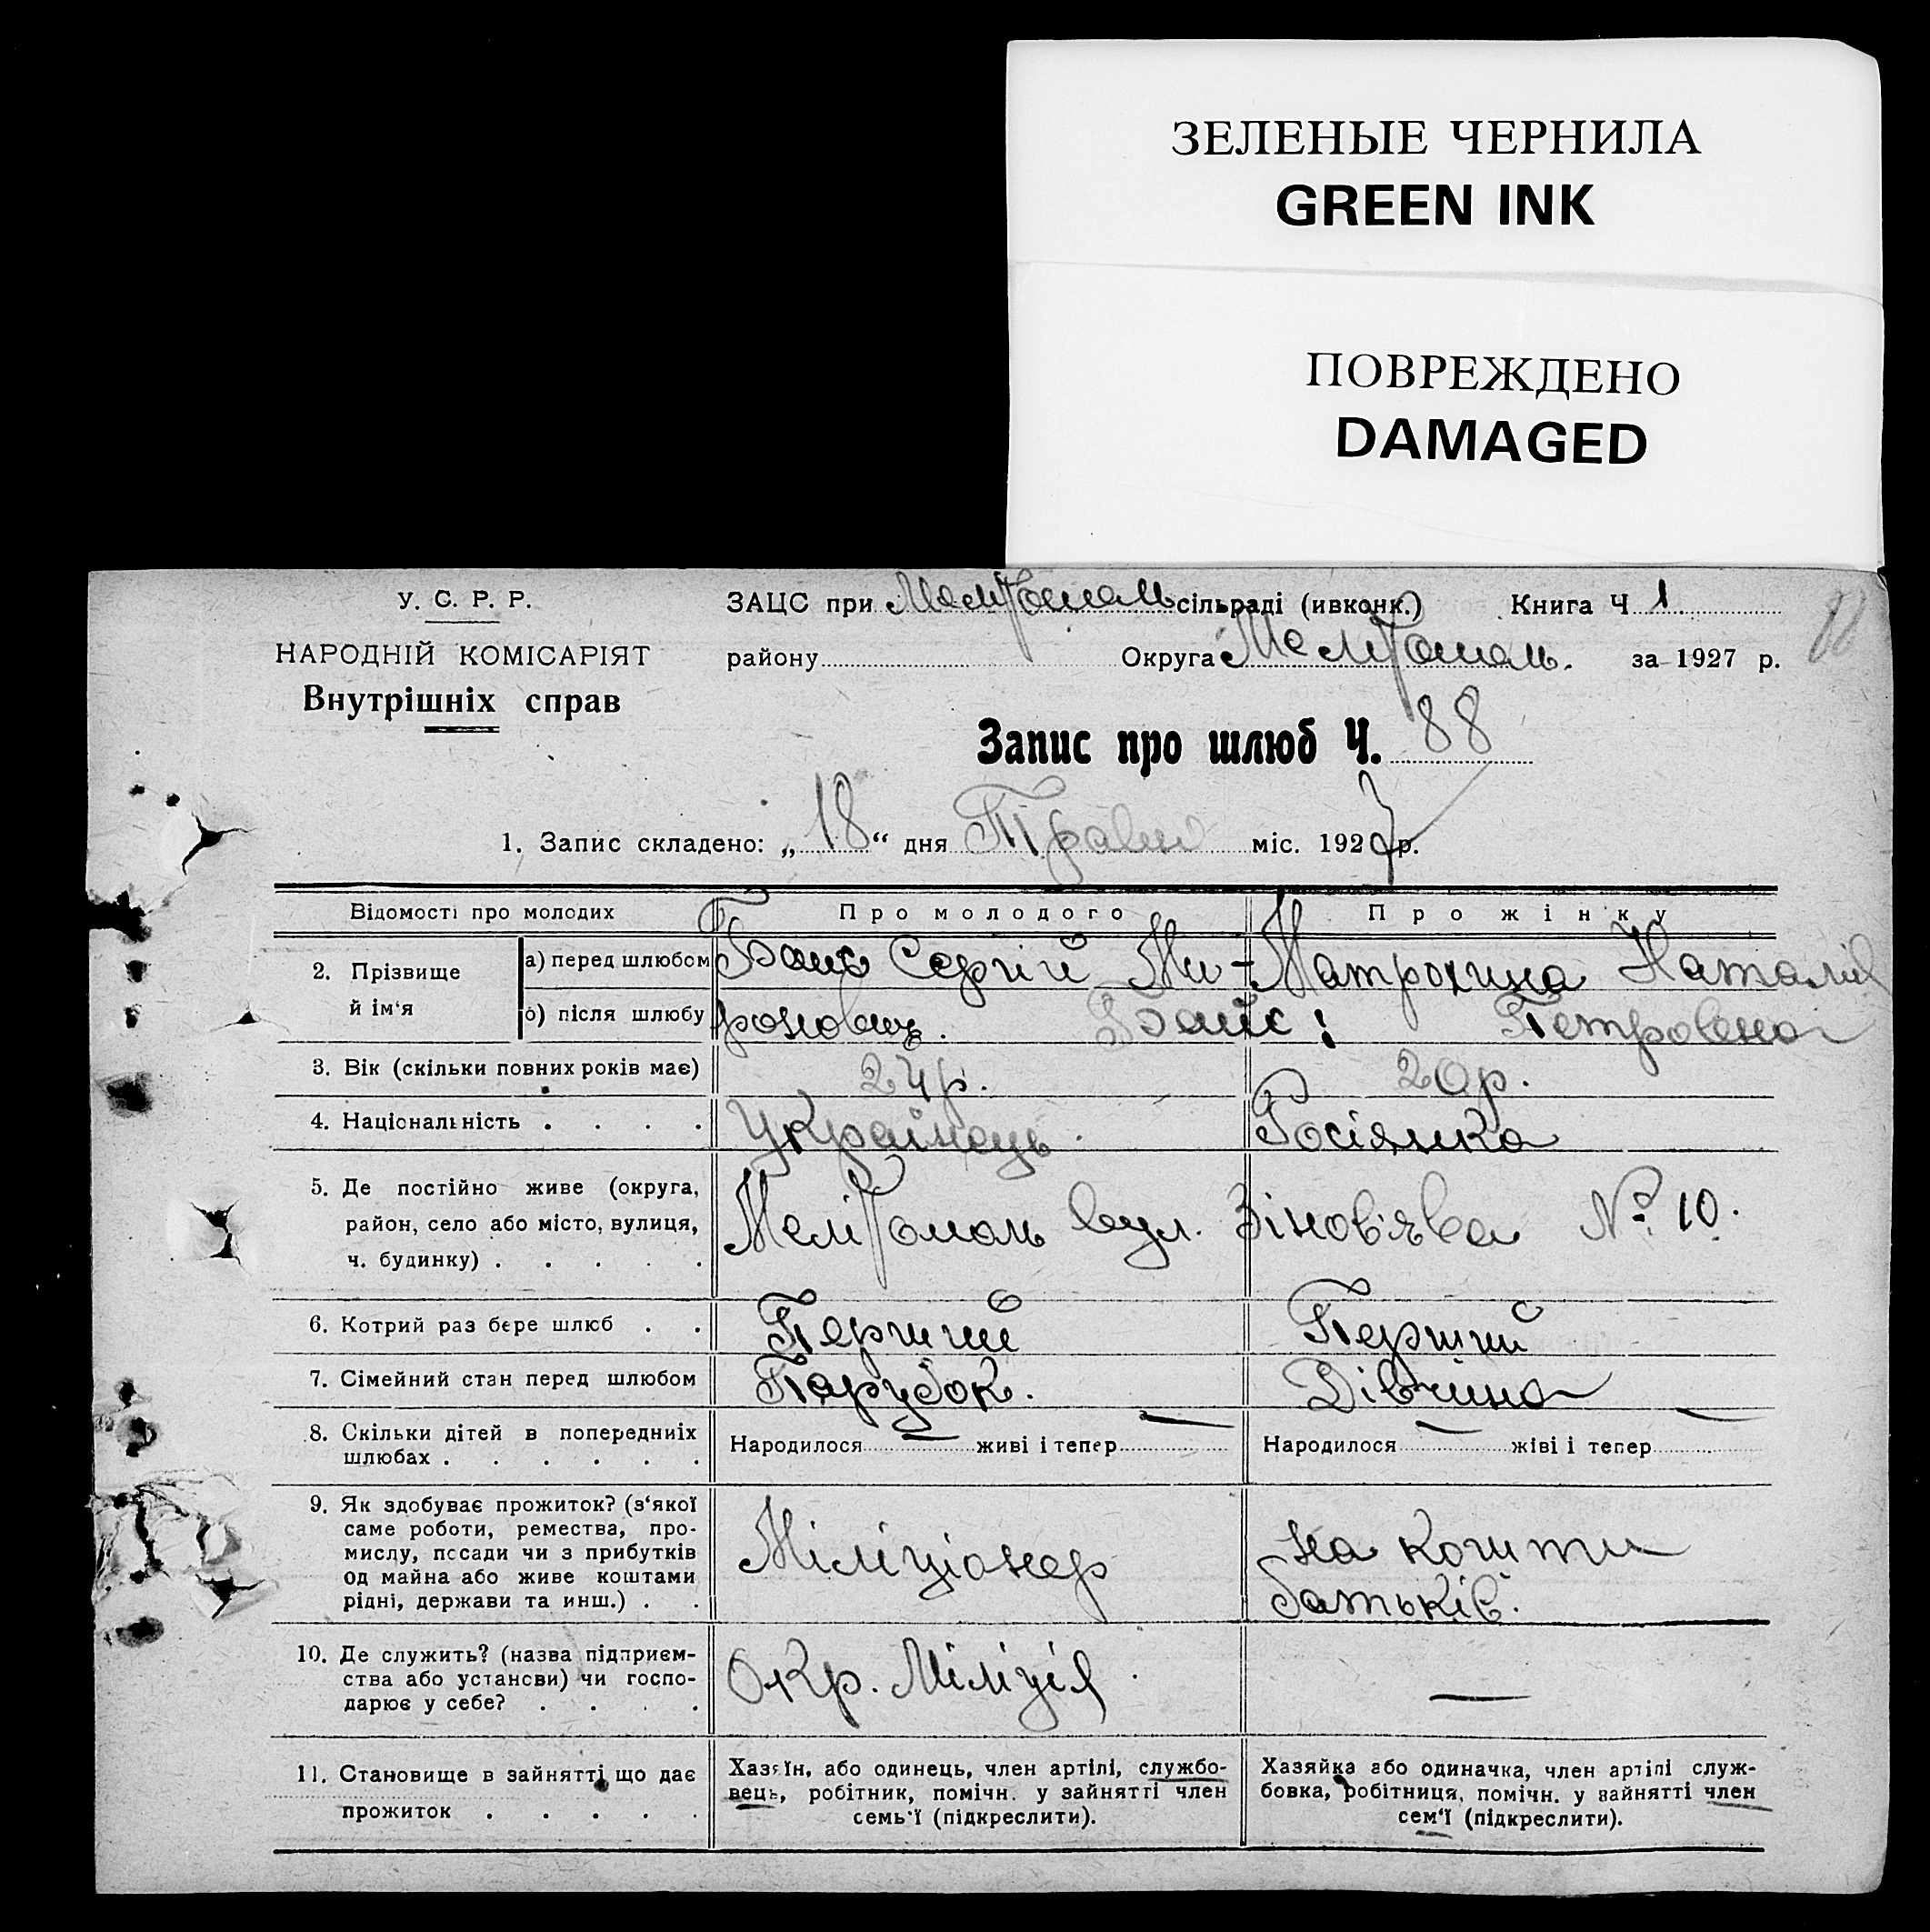 ЗЕЛЕНЫЕ ЧЕРНИЛА
GREEN INK
ПОВРЕЖДЕНО
DAMAGED
У. С. Р. Р.
НАРОДНІЙ КОМІСАРІЯТ
Внутрішніх справ
ЗАЦС при Мелітополь сільраді (ивконк.) Книга Ч 1
району Округа Мелітополь. за 1927 р.
Запис про шлюб Ч. 88
1. Запис складено: „18“ дня Травня міс. 1927 р.
Відомості про молодих
Про молодого
Про жінку
2. Прізвище й ім'я
а) перед шлюбом
б) після шлюбу
Сергій Ми-
роновіч.
Матрохина Наталія
Петровна
3. Вік (скільки повних років має)
24 р.
20 р.
4. Національність . . . .
Українець.
Росіянка
5. Де постійно живе (округа,
район, село або місто, вулиця,
ч. будинку) . . . . .
Мелітополь вул. Зінов'єва № 10.
6. Котрий раз бере шлюб . .
Перший
Перший
7. Сімейний стан перед шлюбом
Парубок.
Дівчина
8. Скільки дітей в попередниіх
шлюбах . . . . . .
Народилося — живі і тепер —
Народилося — жіві і тепер —
9. Як здобуває прожиток? (з'якої
саме роботи, ремества, про-
мислу, посади чи з прибутків
од майна або живе коштами
рідні, держави та инш.) . .
Міліціонер
на кошти
батьків.
10. Де служить? (назва підприєм-
ства або установи) чи госпо-
дарює у себе? . . . .
Окр. Міліція.
—
11. Становище в зайнятті що дає
прожиток . . . . .
Хазяїн, або одинець, член артілі, службо-
вець, робітник, помічн. у зайнятті член
семь'ї (підкреслити).
Хазяйка або одиначка, член артілі служ-
бовка, робітниця, помічн. у зайнятті член
сем'ї (підкреслити).